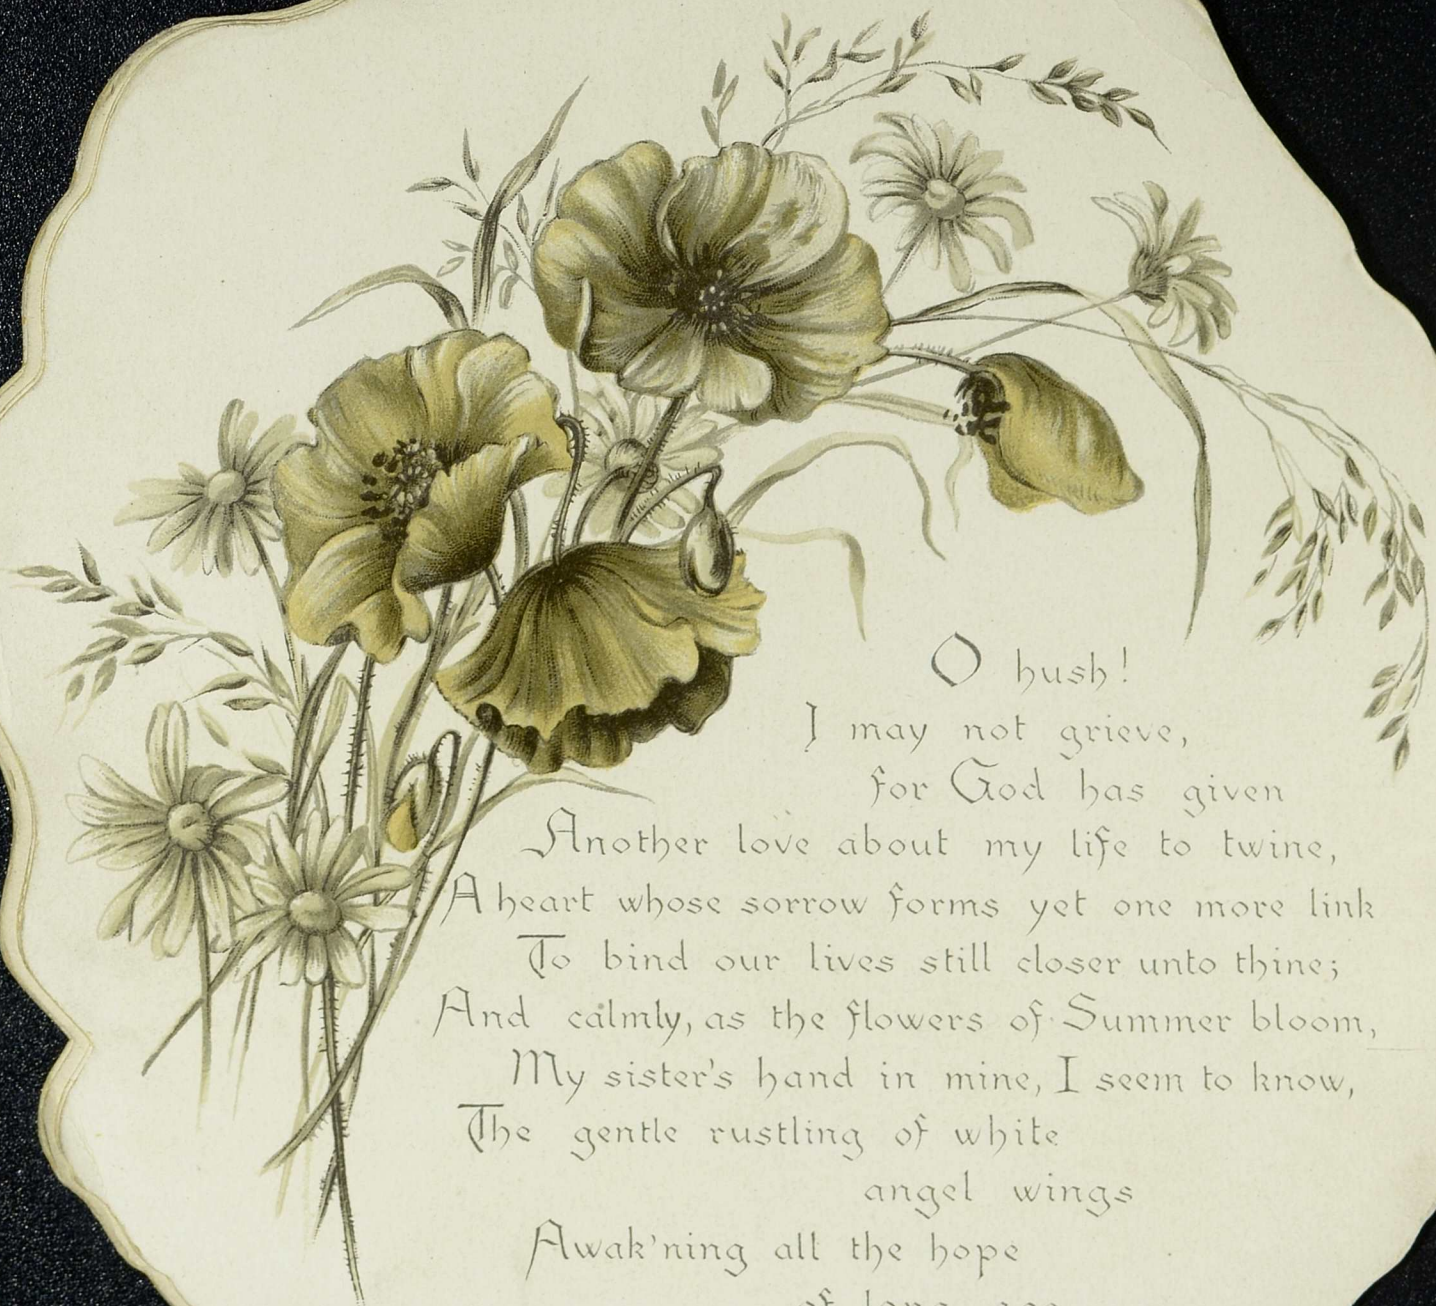 O hush!
I may not grieve,
for God has given
Another love about my life to twine,
A heart whose sorrow forms yet one more link
To bind our lives still closer unto thine;
And calmly, as the flowers of Summer bloom,
My sister's hand in mine, I seem to know,
The gentle rustling of white
angel wings
Awak'ning all the hope
of long ago